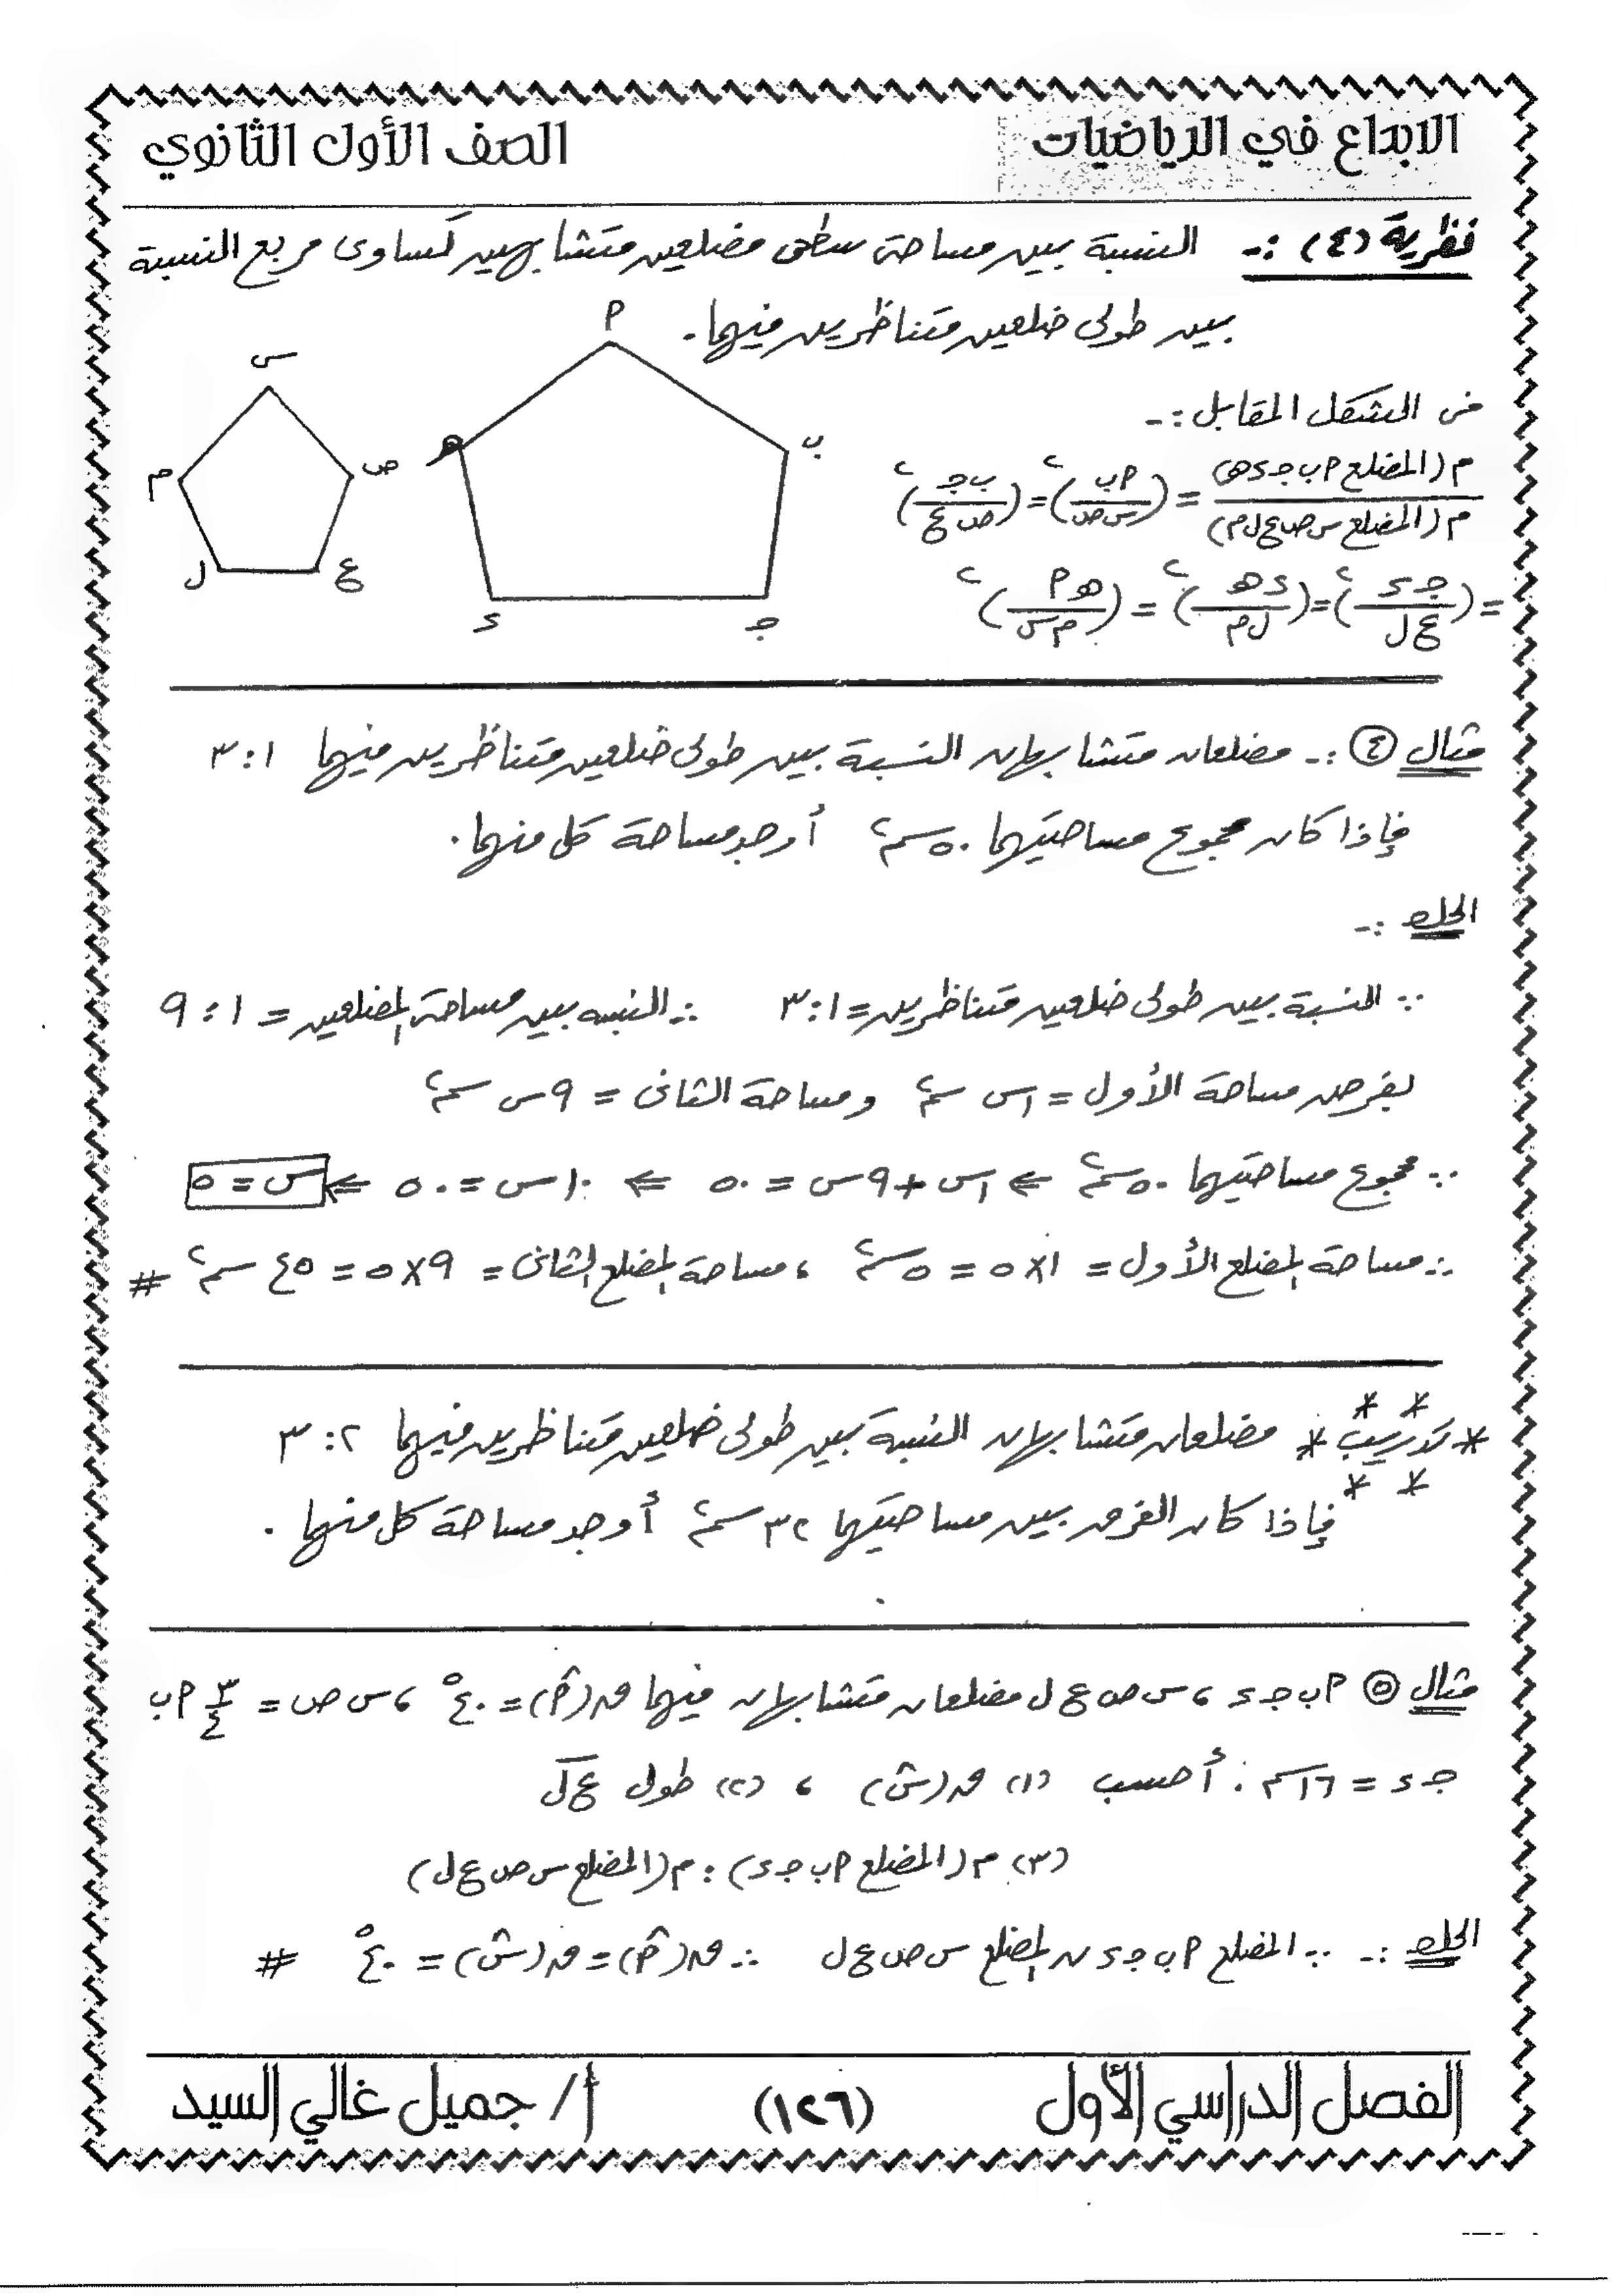 الابداع في الرياضيات
الصف الأول الثانوي
نظرية (٤) :- النسبة بين مساحتى سطحى مضلعين متشابهين تساوى مربع النسبة
بين طولى ضلعين متناظرين فيهما.
فى الشكل المقابل :-
م (المضلع ا ب جـ د هـ) / م (المضلع س ص ع ل م) = (ا ب / س ص)٢ = (ب جـ / ص ع)٢
= (جـ د / ع ل)٢ = (د هـ / ل م)٢ = (هـ ا / م س)٢
ا
ب
جـ
د
هـ
س
ص
ع
ل
م
مثال ٤ :- مضلعان متشابهان النسبة بين طولى ضلعين متناظرين فيهما ١ : ٣
فإذا كان مجموع مساحتيهما ٥٠ سم٢ أوجد مساحة كل منهما.
الحل :-
∵ النسبة بين طولى ضلعين متناظرين = ١ : ٣ ∴ النسبه بين مساحتى المضلعين = ١ : ٩
بفرض مساحة الأول = ١س سم٢ ومساحة الثانى = ٩س سم٢
∵ مجموع مساحتيهما ٥٠ سم٢ ⇐ ١س + ٩س = ٥٠ ⇐ ١٠س = ٥٠ ⇐ س = ٥
∴ مساحة المضلع الأول = ١×٥ = ٥ سم٢ ، مساحة المضلع الثانى = ٩×٥ = ٤٥ سم٢ #
* تدريب * مضلعان متشابهان النسبة بين طولى ضلعين متناظرين فيهما ٢ : ٣
فإذا كان الفرق بين مساحتيهما ٣٢ سم٢ أوجد مساحة كل منهما .
مثال ٥ ا ب جـ د ، س ص ع ل مضلعان متشابهان فيهما ق(اَ) = ٤٠° ، س ص = ٣/٤ ا ب
جـ د = ١٦ سم . أحسب (١) ق(سَ) ، (٢) طول ع ل
(٣) م (المضلع ا ب جـ د) : م (المضلع س ص ع ل)
الحل :- ∵ المضلع ا ب جـ د ~ المضلع س ص ع ل ∴ ق(اَ) = ق(سَ) = ٤٠° #
الفصل الدراسي الأول
(١٢٦)
أ/ جميل غالي السيد